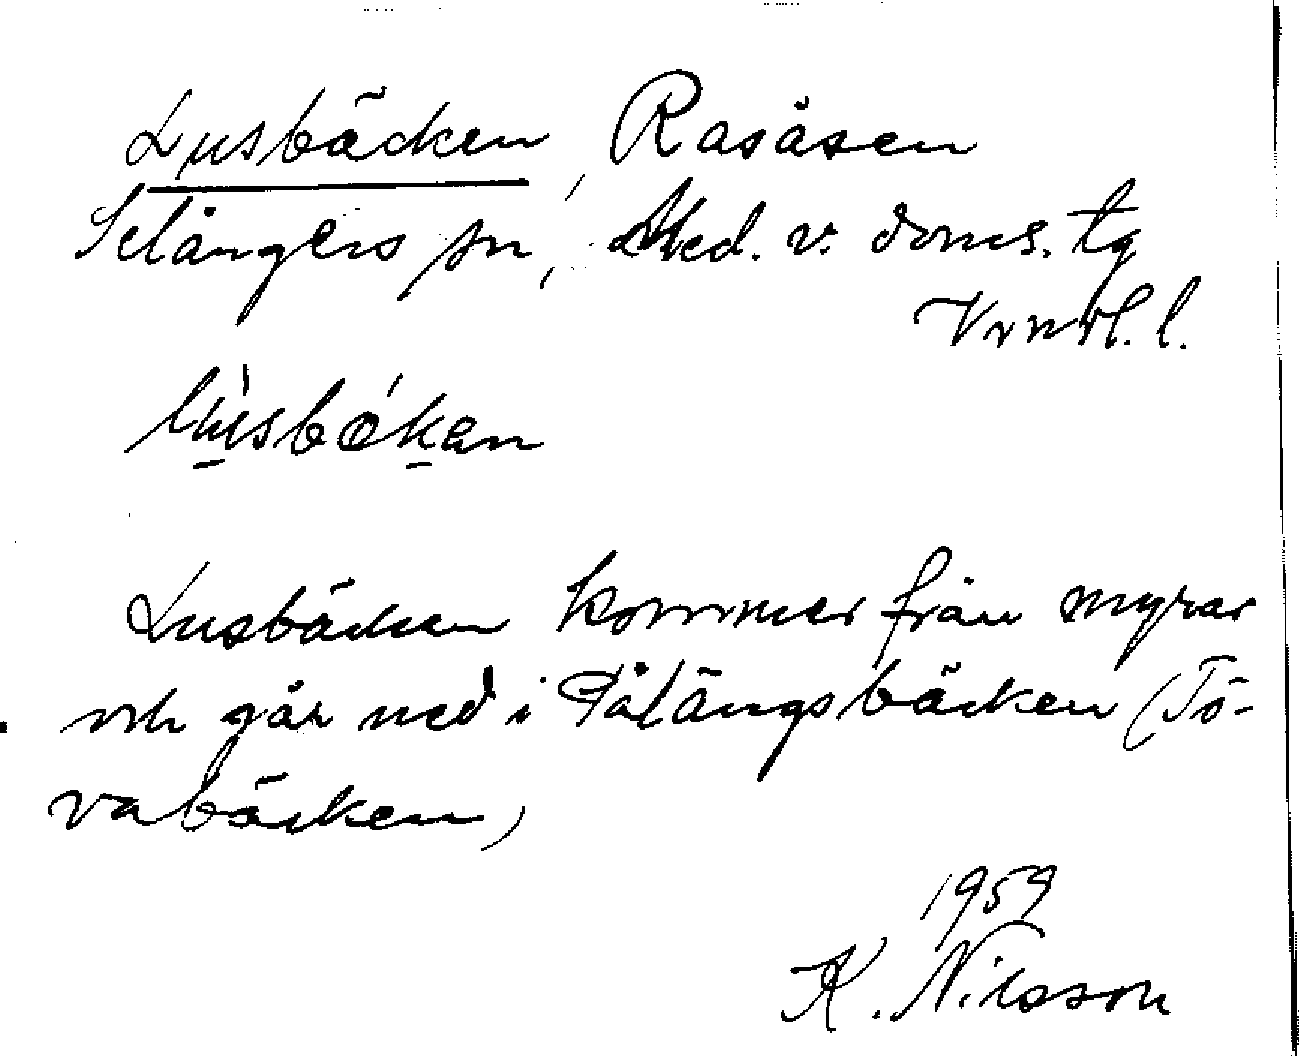 Lusbäcken, Rasåsen
Selångers sn, Med. v. doms. tg
Vrnrl. l.
lùsbǿkan
Lusbäcken kommer från myrar
och går ned i Pålängsbäcken (Tö-
vabäcken)
1959
K. Nilsson